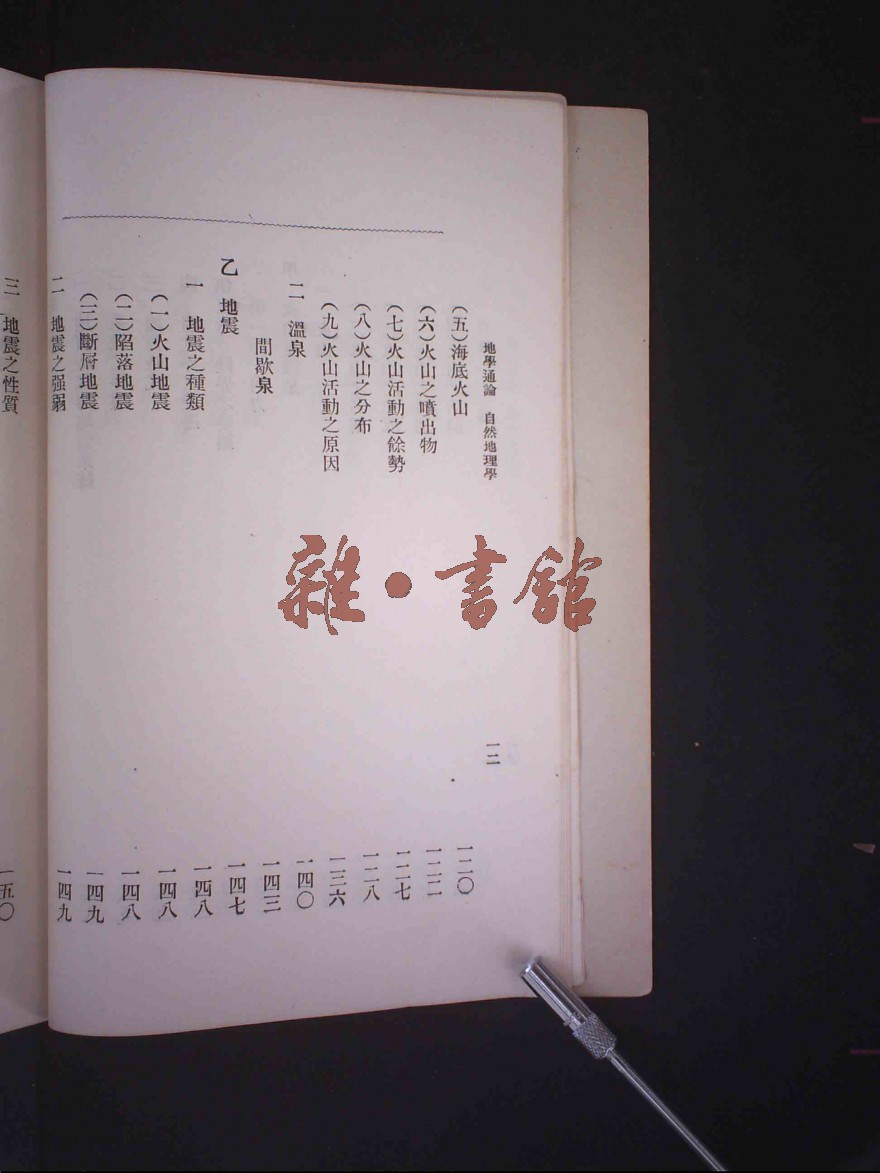 地學通論 自然地理學 一二
(五)海底火山 一二〇
(六)火山之噴出物 一二二
(七)火山活動之餘勢 一二七
(八)火山之分布 一二八
(九)火山活動之原因 一三六
二 溫泉 一四〇
間歇泉 一四三
乙 地震 一四七
一 地震之種類 一四八
(一)火山地震 一四八
(二)陷落地震 一四八
(三)斷層地震 一四九
二 地震之强弱 一四九
三 地震之性質 一五〇
雜·書館